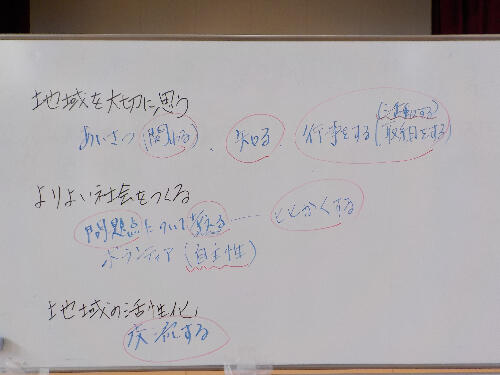 地域を大切に思う
あいさつ(関わる)、知る、行事をする(取組をする)
よりよい社会をつくる
問題点について考える……とにかくする
ボランティア(自主性)
地域の活性化
する